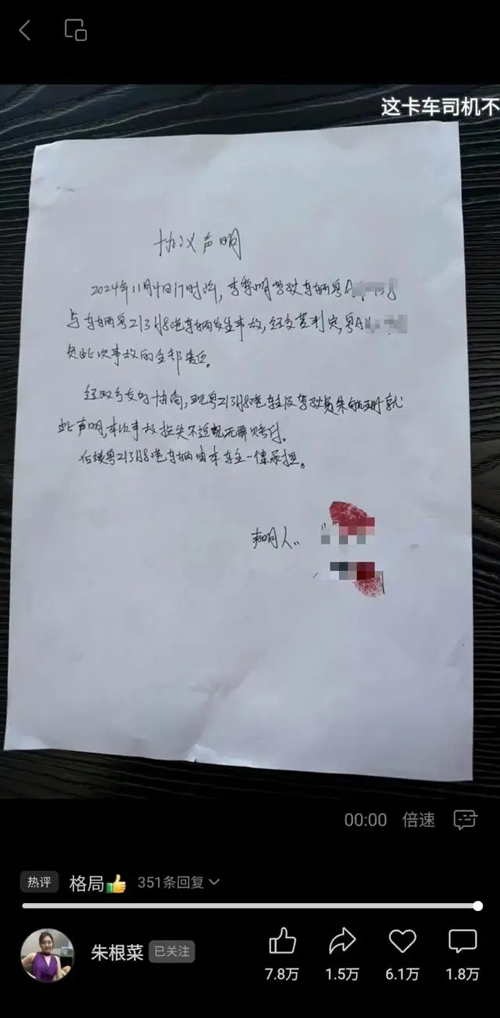 这卡车司机不
协议声明
2024年11月4日17时许,李 驾驶车辆粤A
与车辆粤Z13H8港车辆发生事故,经交警判定,粤A
负此次事故的全部责任。
经双方友好协商,现粤Z13H8港车主及驾驶员朱 就
此声明,本次事故损失不追究无需赔付。
后续粤Z13H8港车辆由本车主一律承担。
声明人:
00:00 倍速
热评 格局👍 351条回复
朱根菜 已关注
7.8万 1.5万 6.1万 1.8万